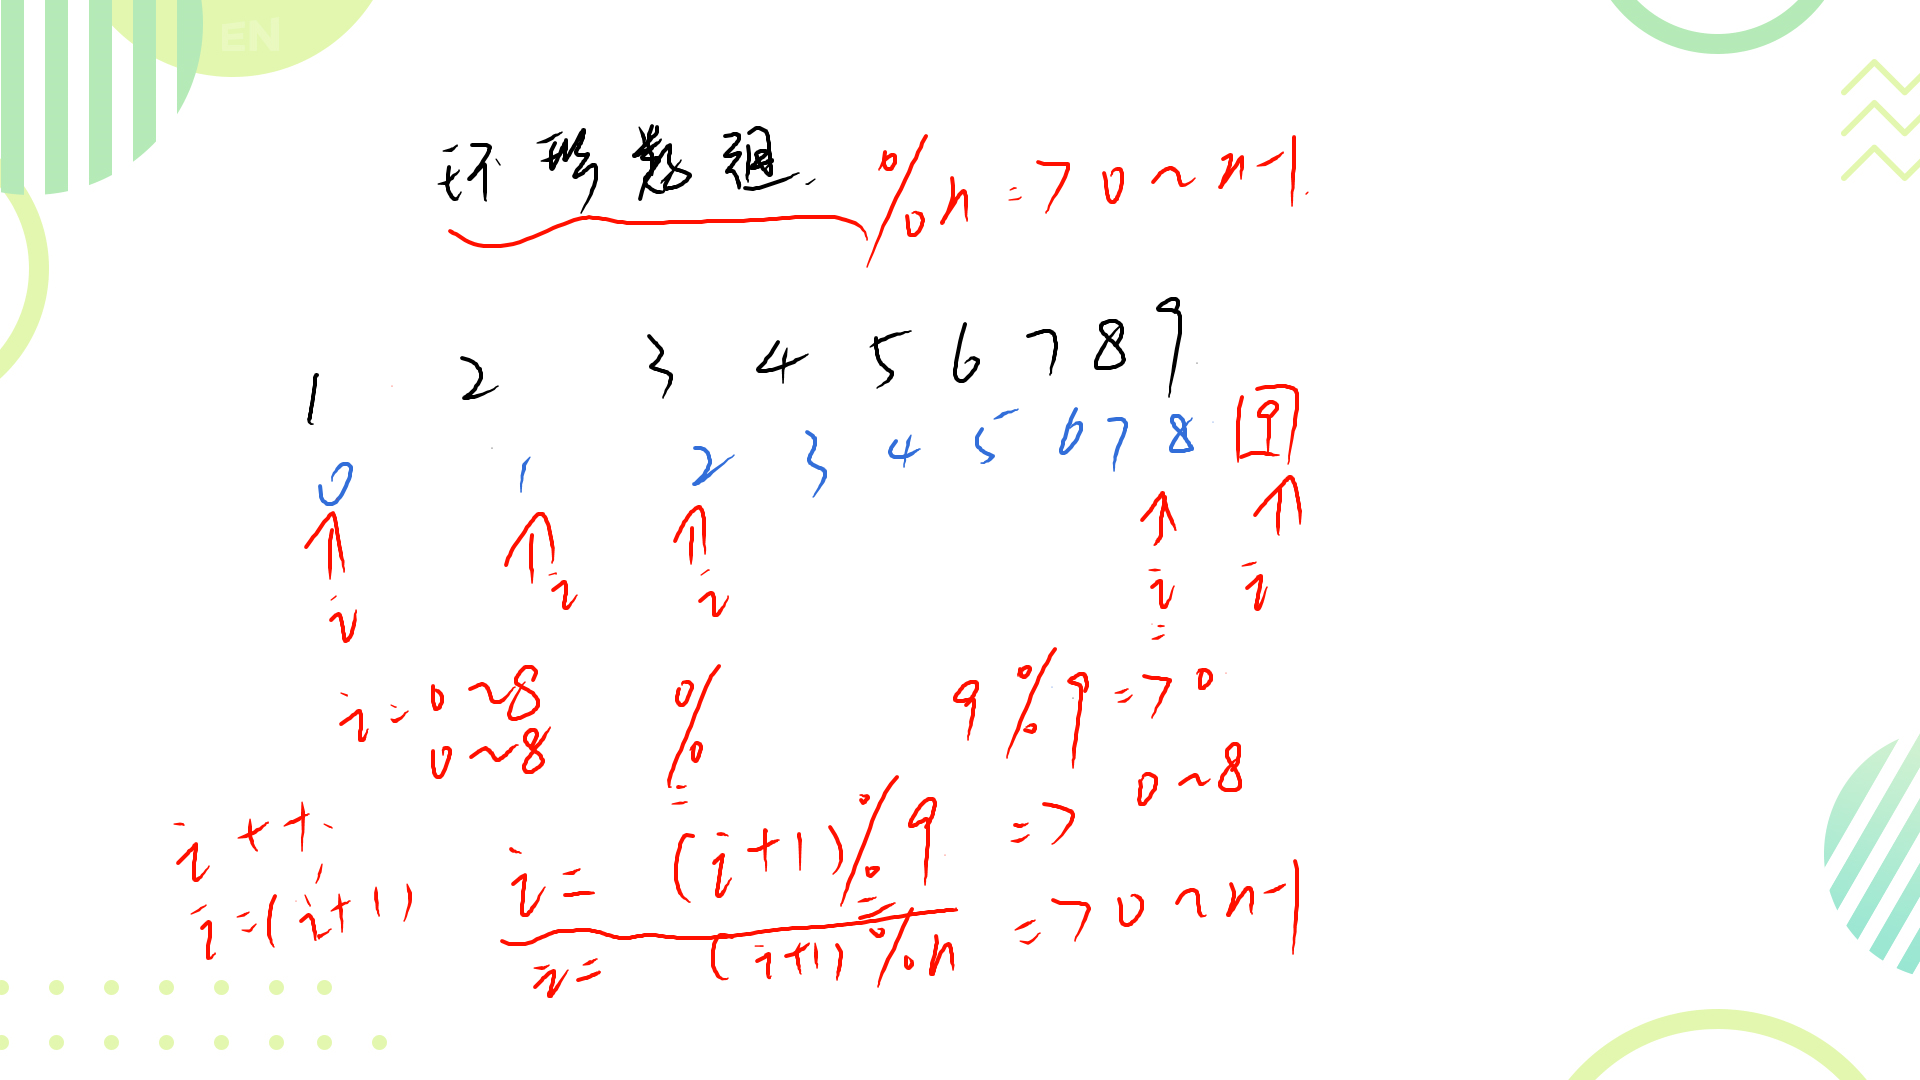 EN
环形数组. %n => 0 ~ n-1.
1 2 3 4 5 6 7 8 9
0 1 2 3 4 5 6 7 8 9
i i i i i
i = 0 ~ 8 % 9 % 9 => 0
0 ~ 8 0 ~ 8
i++; i = (i+1) % 9 =>
i = (i+1) i = (i+1) % n => 0 ~ n-1